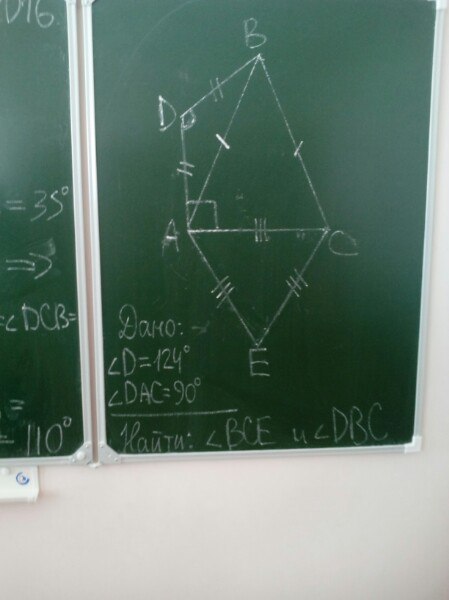 D16
= 35°
=>
∠DCB=
=
110°
B
D
A
C
E
Дано:
∠D=124°
∠DAC=90°
Найти: ∠BCE и ∠DBC